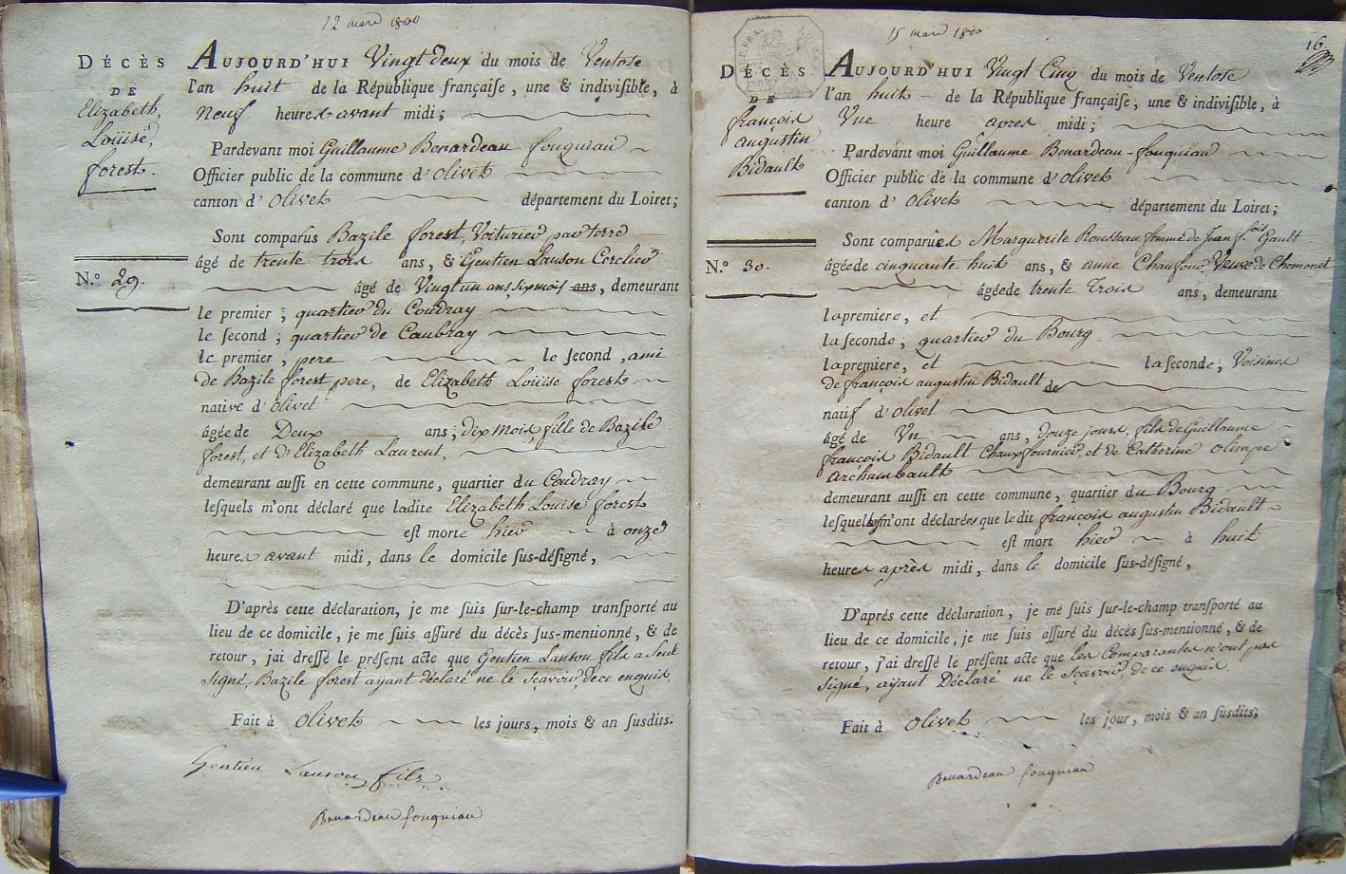 12 mars 1800
DÉCÈS
DE
Elizabeth,
Loüise,
forest.
N.º 29.
AUJOURD'HUI Vingt deux du mois de Ventose
l'an huit de la République françaiſe, une & indiviſible, à
Neuf heures avant midi;
Pardevant moi Guillaume Benardeau fouquiau
Officier public de la commune d'olivet
canton d'olivet département du Loiret;
Sont comparus Bazile forest, Voiturier par terre
âgé de trente trois ans, & Gentien Lauson Cerclier
âgé de Vingt un ans six mois ans, demeurant
le premier, quartier du Coudray
le second; quartier de Caubray
le premier, pere le second, ami
de Bazile forest pere, de Elizabeth Loüise forest
native d'olivet
âgée de Deux ans, dix mois, fille de Bazile
forest, et d'Elizabeth Laurent,
demeurant auſſi en cette commune, quartier du Coudray
leſquels m'ont déclaré que ladite Elizabeth Loüise forest
eſt morte hier à onze
heures avant midi, dans le domicile ſus-déſigné,
D'après cette déclaration, je me ſuis ſur-le-champ tranſporté au
lieu de ce domicile, je me ſuis aſſuré du décès ſus-mentionné, & de
retour, j'ai dreſſé le préſent acte que Gentien Lauson fils a seul
signé, Bazile forest ayant déclaré ne le sçavoir, de ce enquis,
Fait à olivet les jours, mois & an ſusdits.
Gentien Lauson fils
Benardeau fouquiau
15 mars 1800
16
DÉCÈS
DE
françois
augustin
Bidault
N.º 30.
AUJOURD'HUI Vingt Cinq du mois de Ventose
l'an huit de la République françaiſe, une & indiviſible, à
Une heure apres midi;
Pardevant moi Guillaume Benardeau-fouquiau
Officier public de la commune d'olivet
canton d'olivet département du Loiret;
Sont comparues Marguerite Rousseau femme de Jean f.çois Gault
âgée de cinquante huit ans, & anne Chaufour, Veuve de Chomonet
âgée de trente trois ans, demeurant
la premiere, et
la seconde, quartier du Bourg
la premiere, et la seconde, Voisines
de françois augustin Bidault de
natif d'olivet
âgé de Un ans, douze jours, fils de Guillaume
françois Bidault Chaux fournier, et de Catherine olimpe
archambault
demeurant auſſi en cette commune, quartier du Bourg
leſquelles m'ont déclarées que ledit françois augustin Bidault
eſt mort hier à huit
heures après midi, dans le domicile ſus-déſigné,
D'après cette déclaration, je me ſuis ſur-le-champ tranſporté au
lieu de ce domicile, je me ſuis aſſuré du décès ſus-mentionné, & de
retour, j'ai dreſſé le préſent acte que les Comparantes n'ont pas
signé, ayant Déclaré ne le sçavoir, de ce enquis
Fait à olivet les jour, mois & an ſusdits;
Benardeau fouquiau